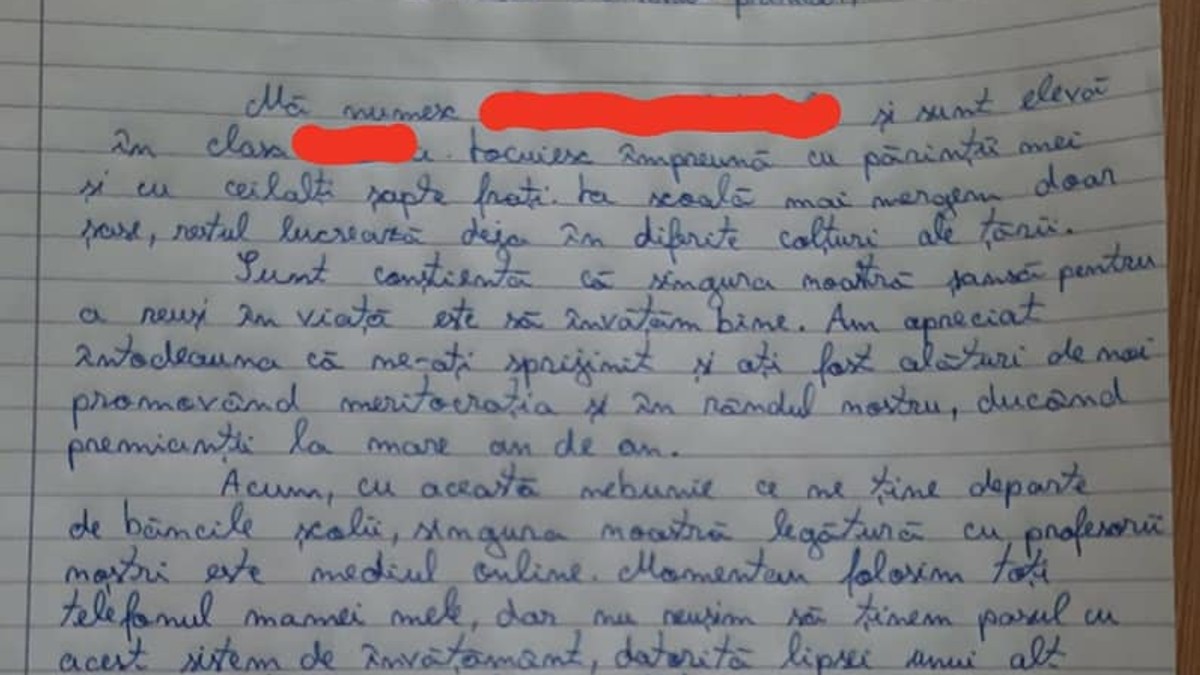 Mă numesc și sunt elevă
în clasa a. Locuiesc împreună cu părinții mei
și cu ceilalți șapte frați. La școală mai mergem doar
șase, restul lucrează deja în diferite colțuri ale țării.
Sunt conștientă că singura noastră șansă pentru
a reuși în viață este să învățăm bine. Am apreciat
întodeauna că ne-ați sprijinit și ați fost alături de noi
promovând meritocrația și în rândul nostru, ducând
premianții la mare an de an.
Acum, cu această nebunie ce ne ține departe
de băncile școlii, singura noastră legătură cu profesorii
noștri este mediul online. Momentan folosim toți
telefonul mamei mele, dar nu reușim să ținem pasul cu
acest sistem de învățământ, datorită lipsei unui alt